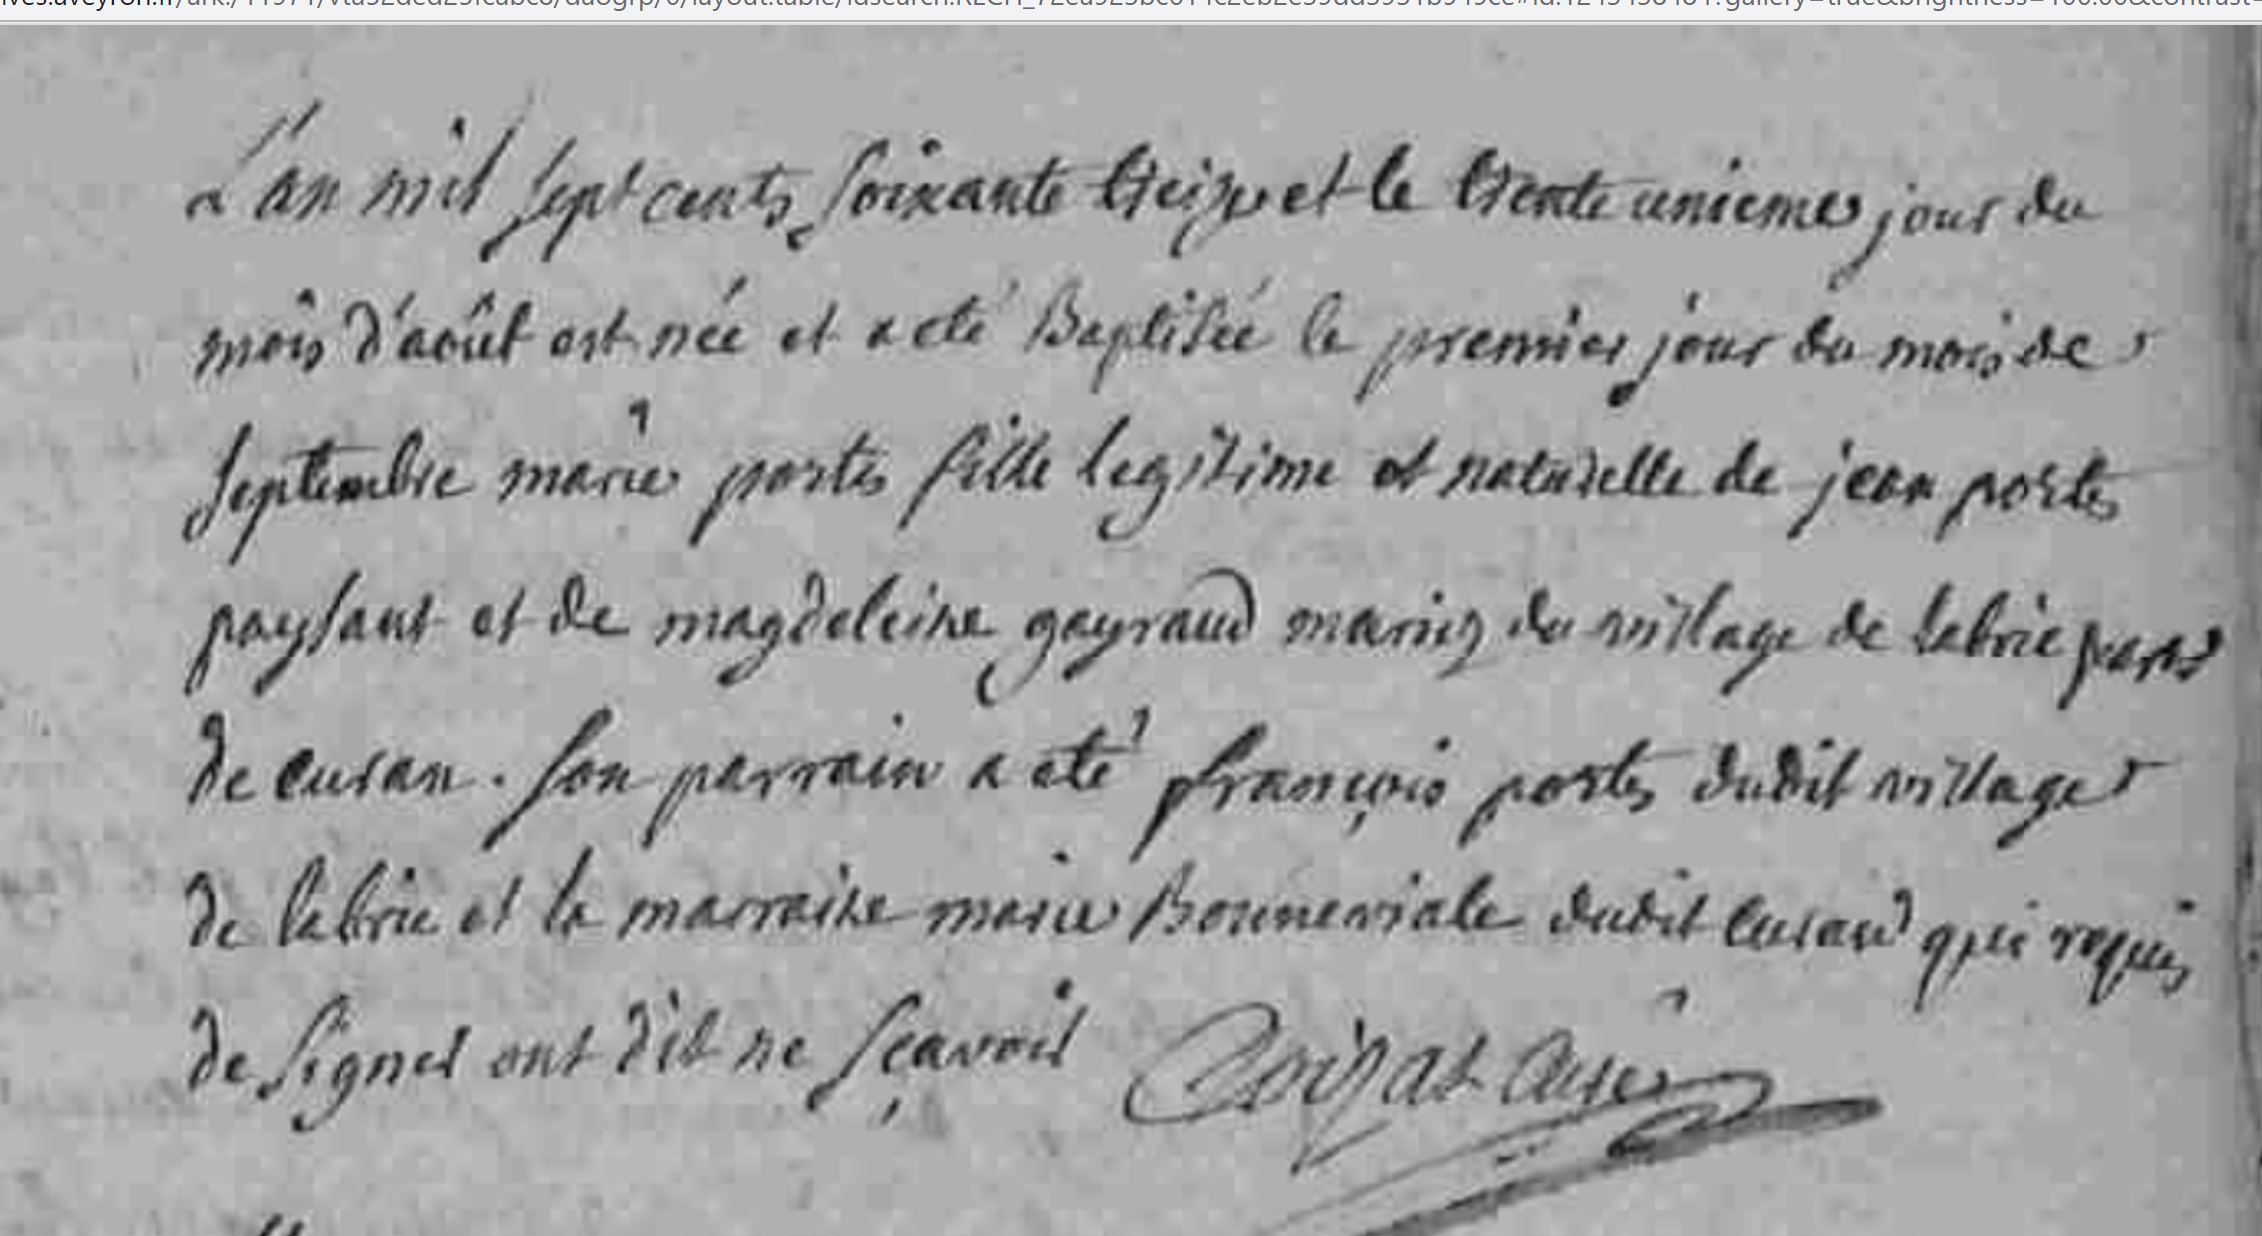 L'an mil sept cents soixante treize et le trente unieme jour du
mois d'août est née et a eté Baptisée le premier jour du mois de
septembre marie portes fille legitime et naturelle de jean portes
paysant et de magdeleine gayraud mariez du village de labrie
de curan. son parrain a eté françois portes dudit village
de labrie et la marraine marie Bonneviale dudit Curan qui requis
de signer ont dit ne sçavoir Curé